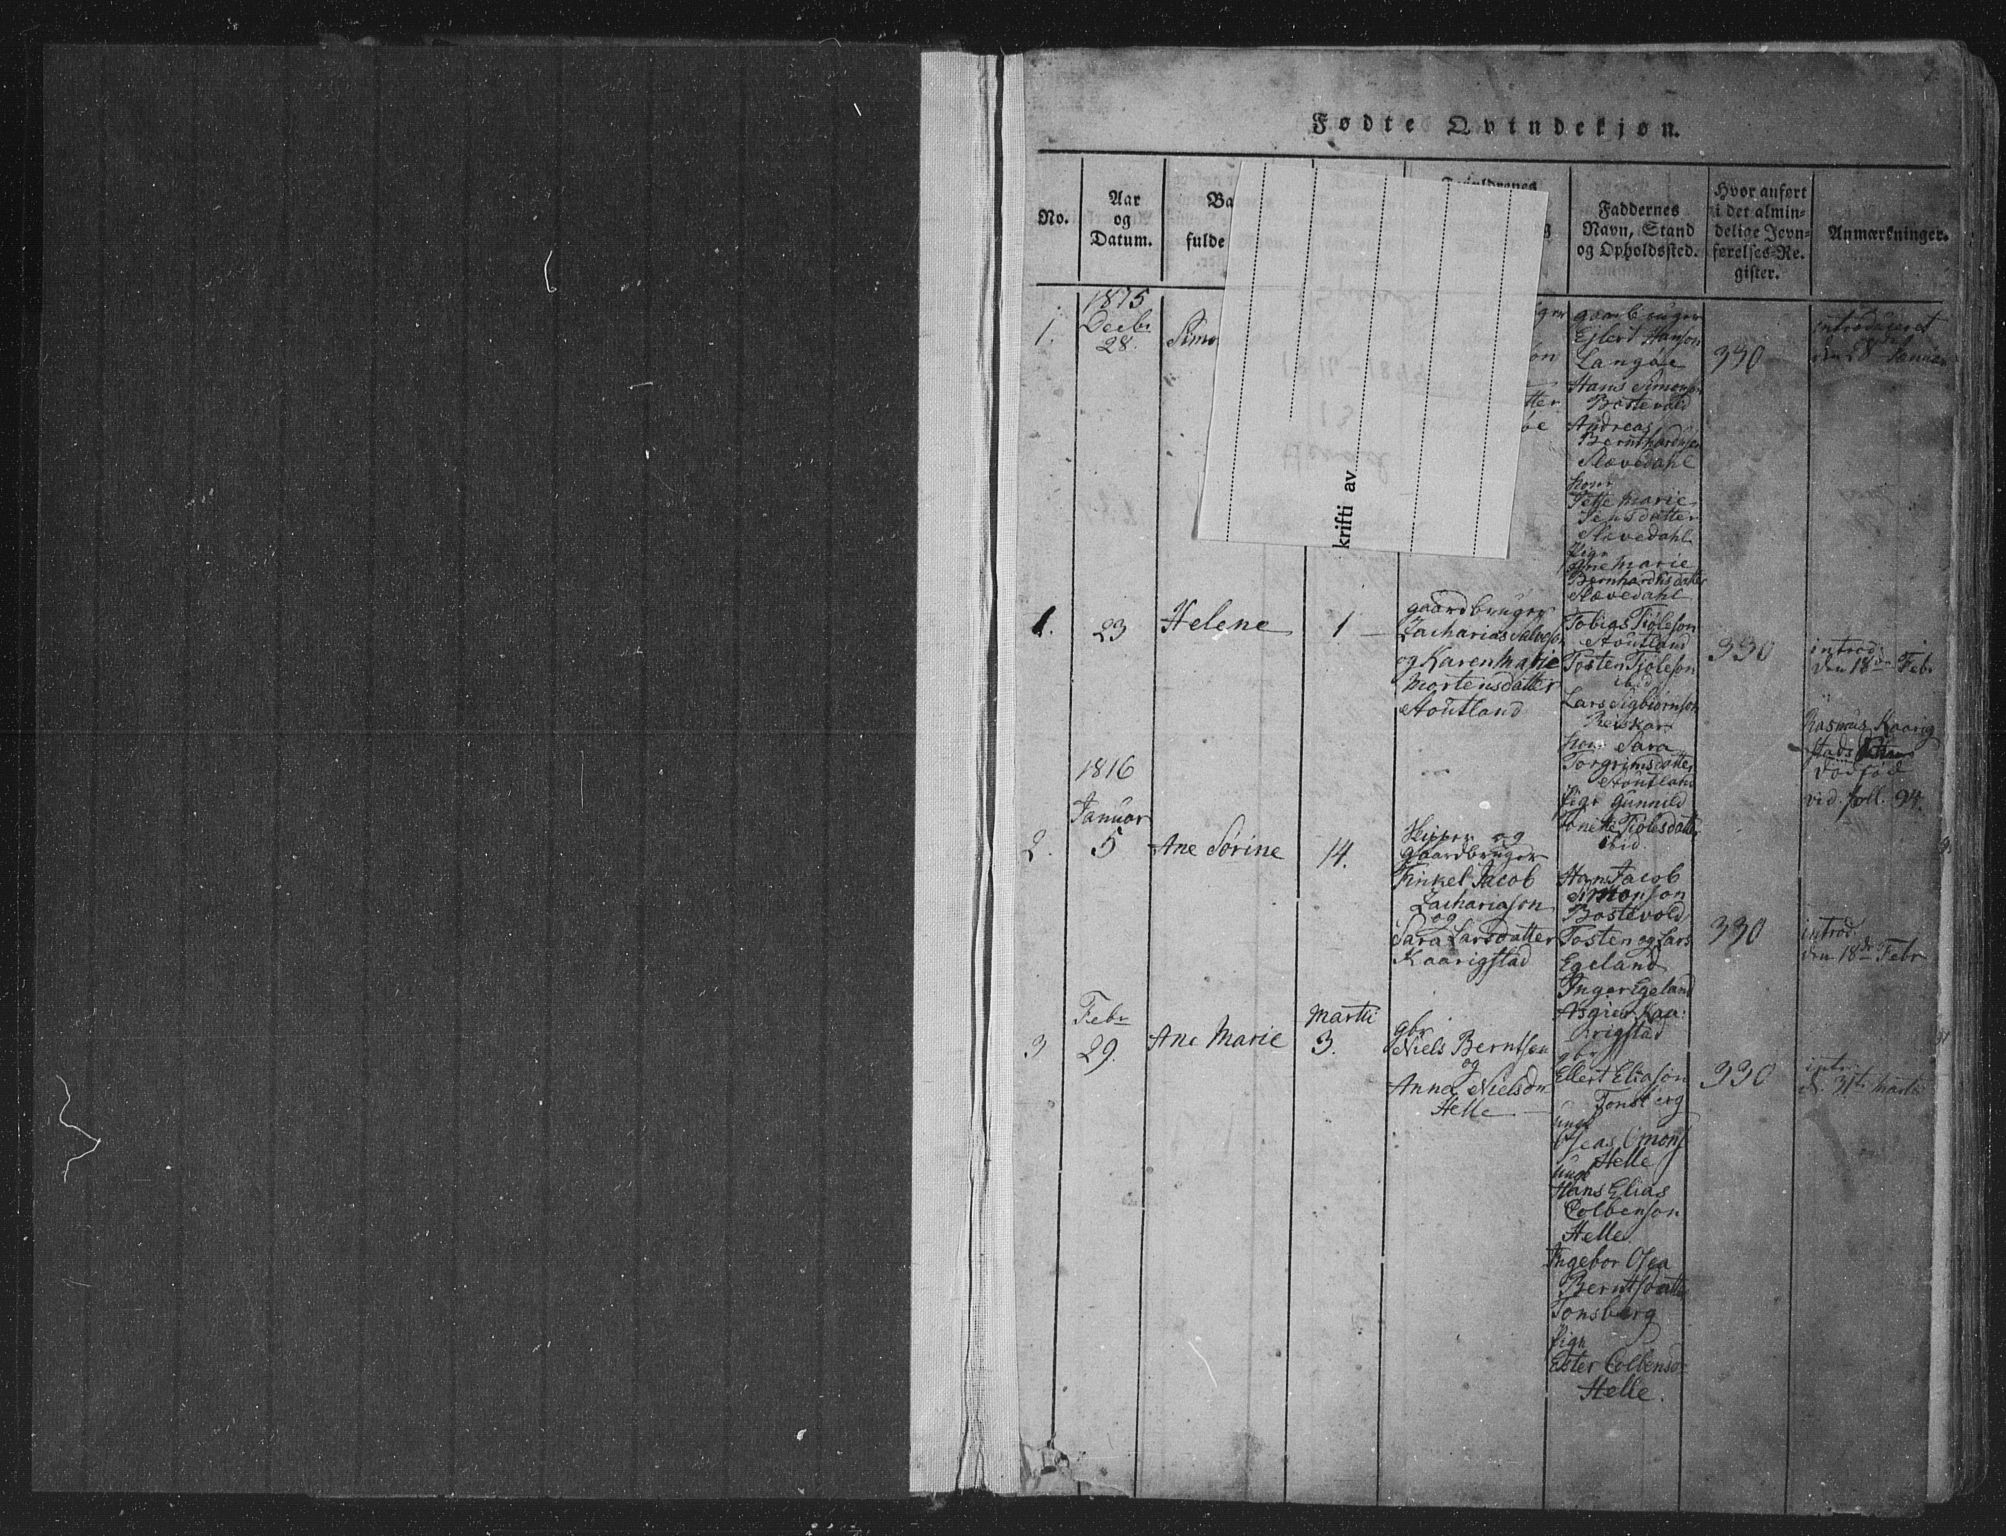 Fødte Qvindekjøn.
No.
Aar
og
Datum.
Ba
fulde
Faddernes
Navn, Stand
og Opholdssted.
Hvor anført
i det almin-
delige Jevn-
førelses-Re-
gister.
Anmærkninger.
krifti av
1.
1815
Decbr
28.
Simo
Ejlert Hanson
Langøe
Hans Simonson
Bostevold
Andreas
Bernthardsen
Slævedahl
Marie
Jensdatter
Slævedahl
Ane Marie
Bernhardtsdatter
Slævedahl
330
introduceret
den 28 Januar
1.
23
Helene
1
gaardbruger
Zacharias Salveson
og Karen Marie
Mortensdatter
Stoutland
Tobias Tioleson
Stoutland
Tosten Tioleson
ibid
Lars Sigbiørnson
Reiskar
kone Sara
Torgrimsdatter
Stoutland
pige Gunnild
Tiolesdatter
ibid.
330
introd:
den 18de Febr
Rasmus Kaarig
stads
dødfød
vid. foll. 94.
1816
Januar
2.
5
Ane Sorine
14.
og
gaardbruger
Tinkel Jacob
Zachariason
og
Sara Larsdatter
Kaarigstad
Hans Jacob
Simonson
Bostevold
Tosten og Lars
Egeland
Inger Egeland
Asgier Kaa-
rigstad
330
introd.
den 18de Febr
3
Febr
29.
Ane Marie
Martii
3.
gbr
Niels Berntsen
og
Anne Nielsdr
Helle
gbr
Ellert Eliason
Tonsberg
ungk
Oseas Omons
Helle
ungk
Hans Elias
Colbenson
Helle.
Ingebor Osea
Berntsdatter
Tonsberg
pige
Ester Colbensd:
Helle.
330
intr.
d. 31te Martii